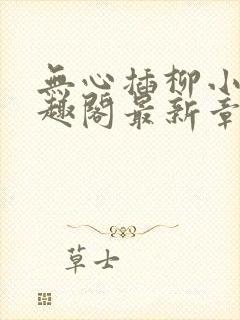 無心插柳小
趣閣最新章
草士